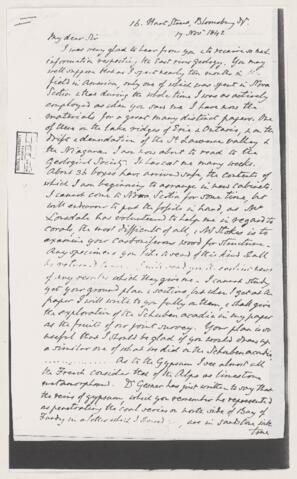 16. Hart Street, Bloomsbury Sq.
17 Nov 1842
My dear Sir
I was very glad to hear from you & to receive so much
information respecting the East river Geology. You may
well suppose that as I spent nearly ten months in
field in America, only one of which was spent in Nova
Scotia & that during the whole time I was as actively
employed as when you saw me I have now the
materials for a great many distinct papers. One
of them on the lake ridges of Erie & Ontario, & on the
Drift & denudation of the St Lawrence valley &
the Niagara I am now about to read to the
Geological Society. It has cost me many weeks.
About 32 boxes have arrived safe, the contents of
which I am beginning to arrange in new cabinets
I cannot come to Nova Scotia for some time, but
will endeavour to put the fossils in hand, as Mr
Lonsdale has volunteered to help me in regard to
corals, the most difficult of all, & Mr Stokes is to
examine your carboniferous wood for structure.
Any specimens you like to send of this kind shall
be
of any results which they give me. I cannot study
yet your ground plan & sections, but when I go at the
paper I will write to you fully on them, & shall give
the exploration of the Schubenacadie in my paper
as the fruits of our joint survey. Your plan is so
useful that I should be glad if you would draw up
a similar one of what we did on the Schubenacadie
As to the Gypsum I see almost all
the French consider that of the Alps as limestone
metamorphosed. Dr Gesner has just written to say that
the veins of gypsum, which you remember he represented
as penetrating the coal series on north side of Bay of
Fundy in a letter which I showed you, are in sandstone like
time